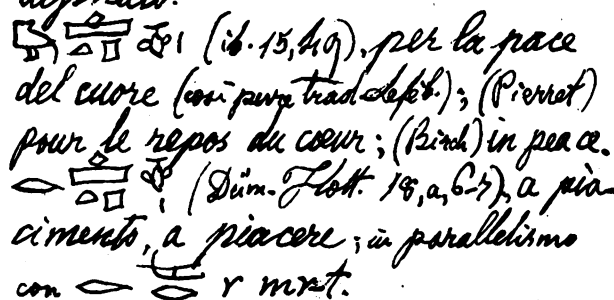 𓅓𓊵𓏏𓊪𓄣𓏤 (ib. 15,49), per la pace
del cuore (così pure trad. Lefèb.); (Pierret)
pour le repos du cœur; (Birch) in peace.
𓂋𓊵𓏏𓊪𓄣𓏤 (Düm. Flott. 18, a, 6-7), a pia-
cimento, a piacere; in parallelismo
con 𓂋 r mrt.